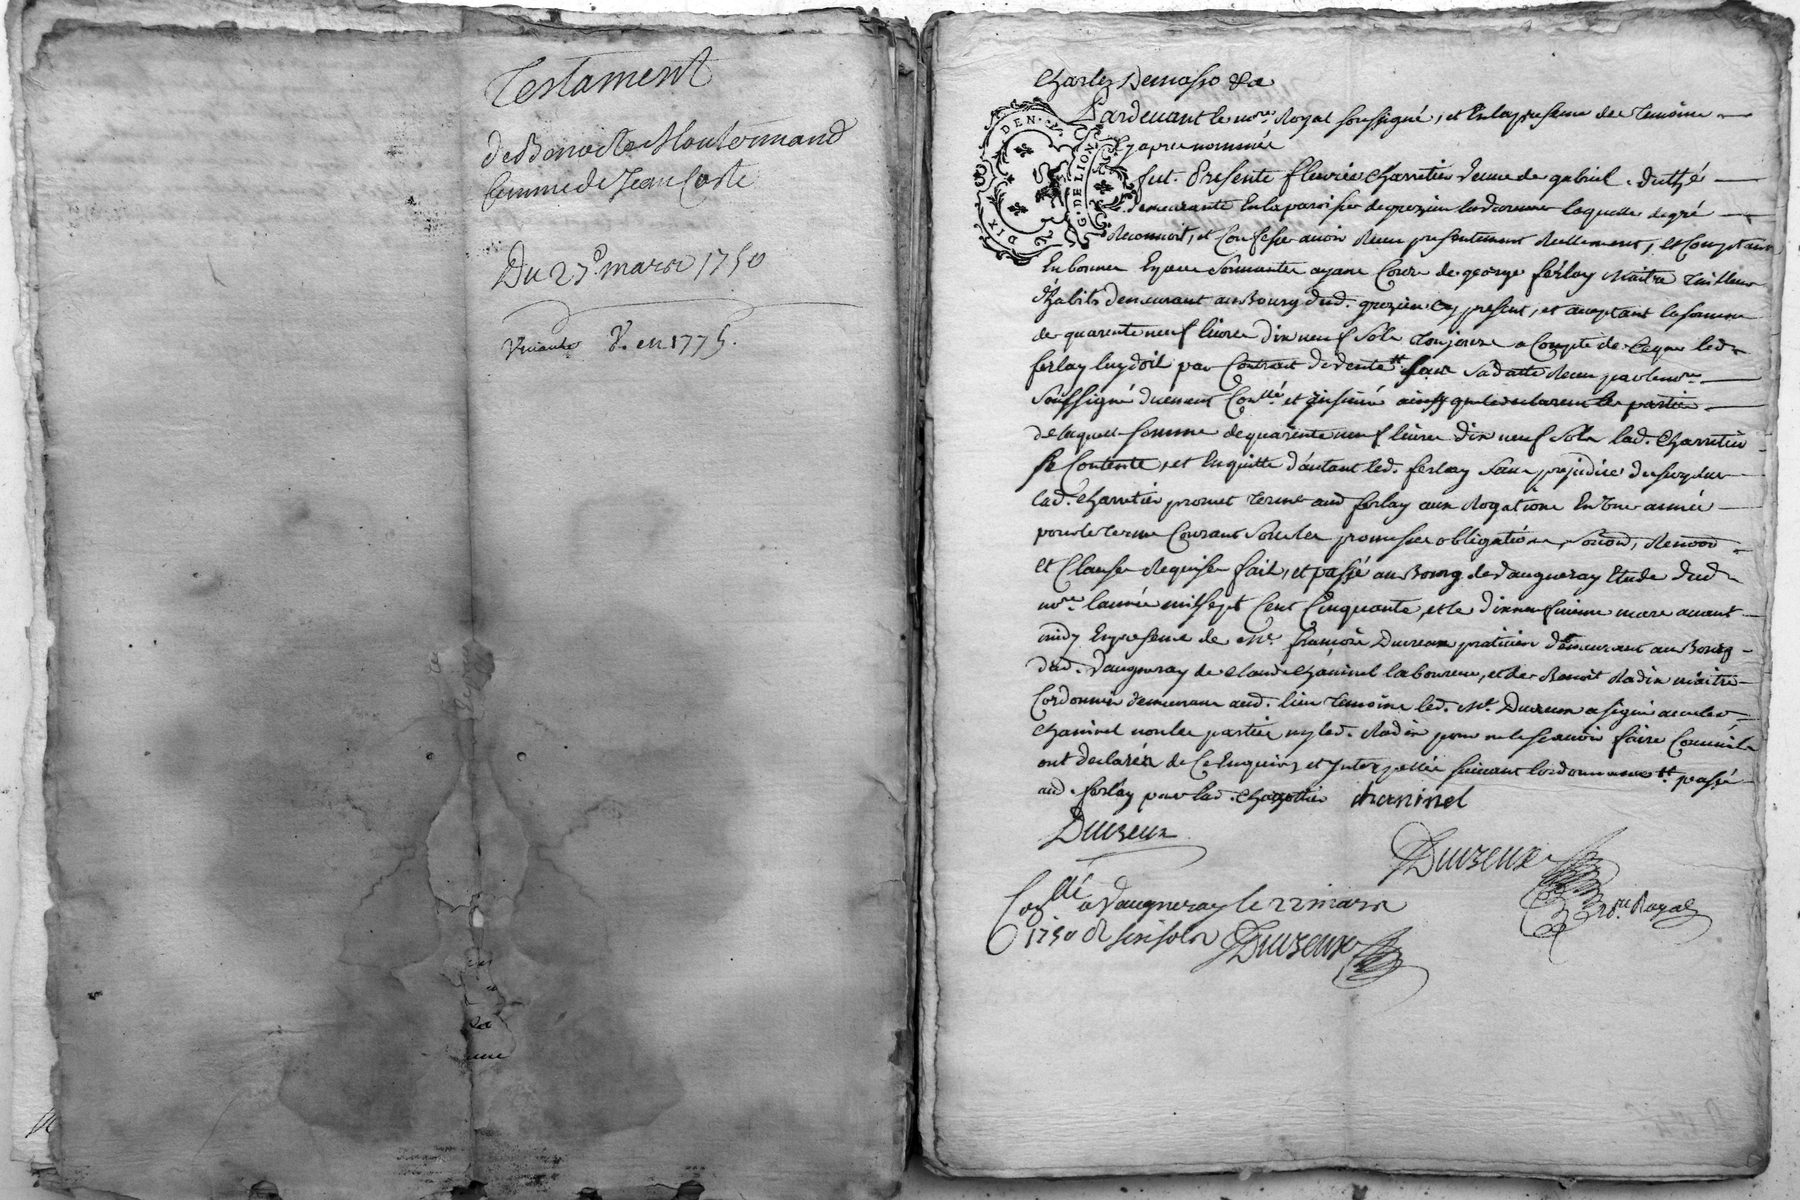 Testament
de Benoiste Moulermand
femme de Jean Coste
Du 27e marse 1750
V. en 1775.
Charles Demasso &a
Pardevant le nore Royal soussigné, et En la presence de temoins
Cy apres nommés
fut Presente fleurie Charretier veuve de gabriel duthé
demeurante En la paroisse de grezieu laquelle de gré
Reconnoit, et Confesse avoir Receu presentement Reellement, et Comptant
En bonnes Especes sonnantes ayant Cours de george ferlay Maitre tailleur
d'habits demeurant au Bourg dud. grezieu Cy present, et aceptant la somme
de quarente neuf livres dix neuf sols a Compte de Ceque led.
ferlay luy doit par Contrat de vente sous sa datte Receu par le nore
soussigné duement Conllé et insinué ainsy que le declarent les parties
de laquelle somme de quarente neuf livres dix neuf sols lad. Charretier
se Contente, et En quitte d'autant led. ferlay sans prejudice du surplus
lad. Charretier promet terme aud ferlay aux Rogations En une année
pour le terme Courant sous les promesses obligations, Renon
et Clauses Requises fait, et passé au Bourg de Vaugneray Etude dud.
nore l'année mil sept Cent Cinquante, et le dixneufvieme mars avant
midy En presence de Me. françois Duvreux praticien demeurant au Bourg
dud. Vaugneray de Claude Chaninel laboureur, et de Benoit Radix maitre
Cordonnier demeurant aud. lieu temoins led. Me. Duvreux a signé avec led.
Chaninel non les parties ny led. Radix pour ne le scavoir faire Comm'ils
ont declarés de Ce Enquis, et Interpellés suivant l'ordonnance passé
aud. ferlay par lad. Charretier chaninel
Duvreux
Duvreux
nore Royal
Conllé a Vaugneray le 22 mars
1750 R six sols Duvreux
DIX DEN. G. DE LION